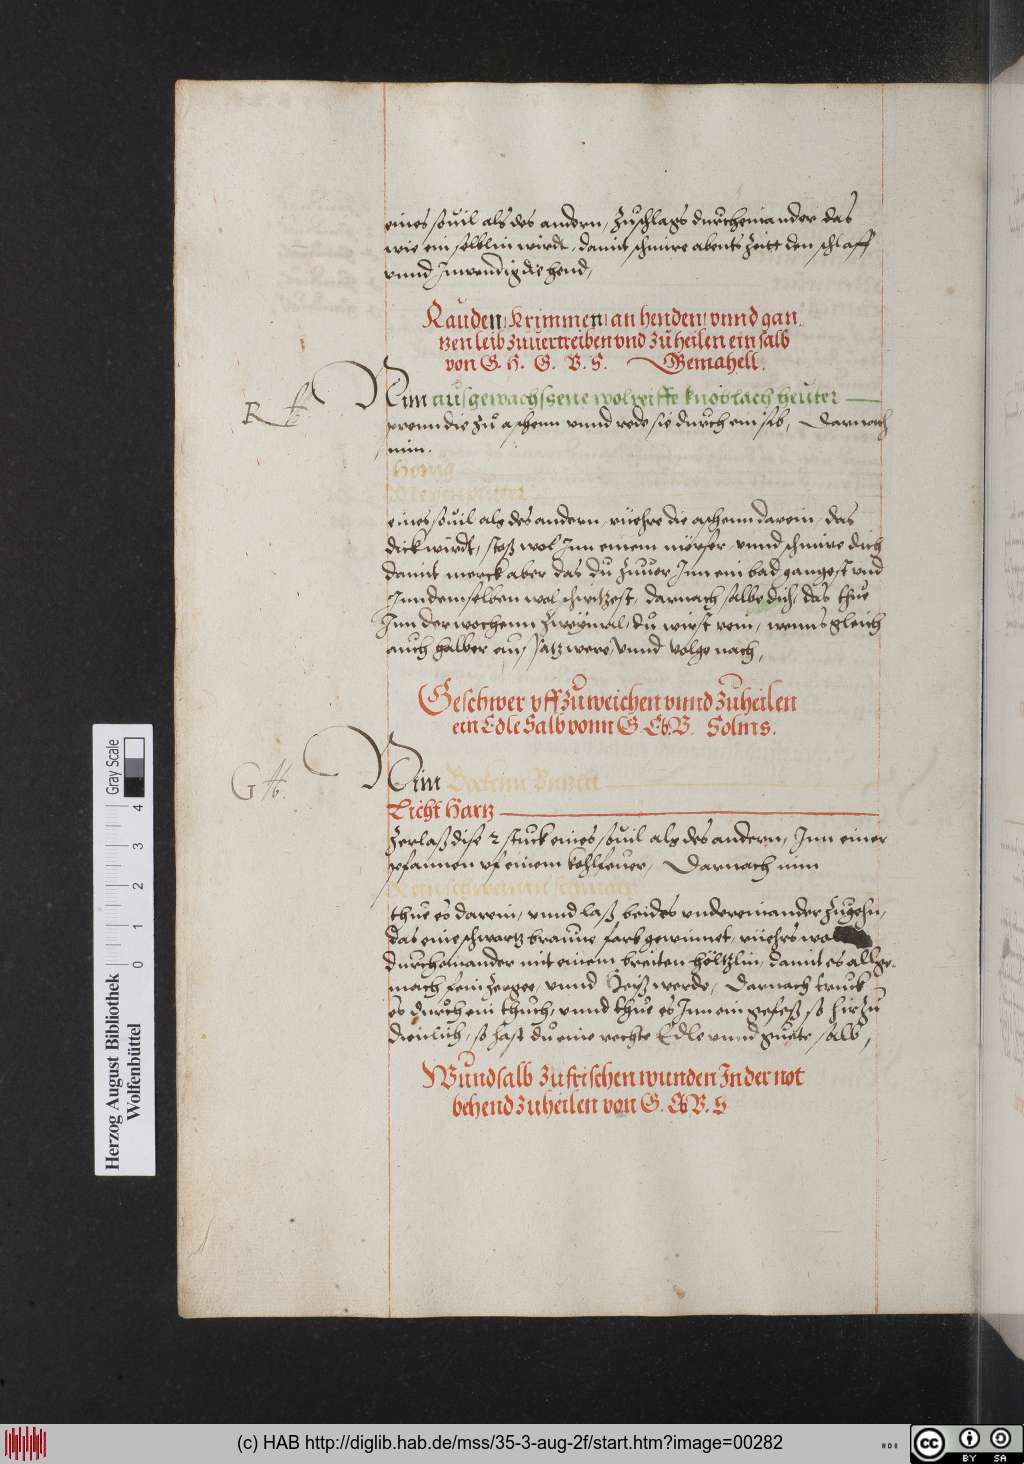 eines souil als des andern, Zuschlags durcheinander das
wie ein selblin wirdt, damit schmire abents Zeitt den schlaff
vnnd Inwendig die hend,
Rauden, Krimmen, an henden, vnnd gan,,
tzen leib Zuuertreiben vnd Zu heilen ein salb
von G. H. G. B. S. Gemahell.
R
Nim ausgewachssene wolreiffe knoblach heuter
prenn die Zu aschenn vnnd rede sie durch ein sib, Darnach
nim.
Honig
Meyen Butter
eines souil als des andern, rüehre die aschenn darein, das
dick wirdt, stoß wol Inn einem mörser vnnd schmire dich
damit merck aber das du Zuuor Inn ein bad gangest vnd
Inn demselben wol schwitzest, darnach salbe dich, das thue
Inn der wochenn Zweymal, du wirst rein, wenns gleich
auch halber ein, satz were, vnnd volge nach,
Geschwer vff Zuweichen vnnd Zuheilen
ein Edle Salb vonn G. Eb. B. Solms.
G
Nim
Licht Hartz
Zerlaß dise 2 stuck eines souil als des andern, Inn einer
pfannen vf einem kohlfeuer, Darnach nim
Rein schweinin schmaltz
thue es darein, vnnd laß beides vndereinander Zugehn,
das eine schwartz braune farb gewinnet, rüehrs wol
durcheinander mit einem breiten höltzlin, damit es allge,,
mach fein Zergee, vnnd heiß werde, Darnach truck
es durch ein thuch, vnnd thue es Inn ein gefeß so hirZu
dienlich, so hast du eine rechte Edle vnnd guete salb,
Wundsalb Zu frischen wunden In der not
behend Zuheilen von G. Eb B. S
Herzog August Bibliothek
Wolfenbüttel
Gray Scale
0 1 2 3 4
(c) HAB http://diglib.hab.de/mss/35-3-aug-2f/start.htm?image=00282
cc BY SA